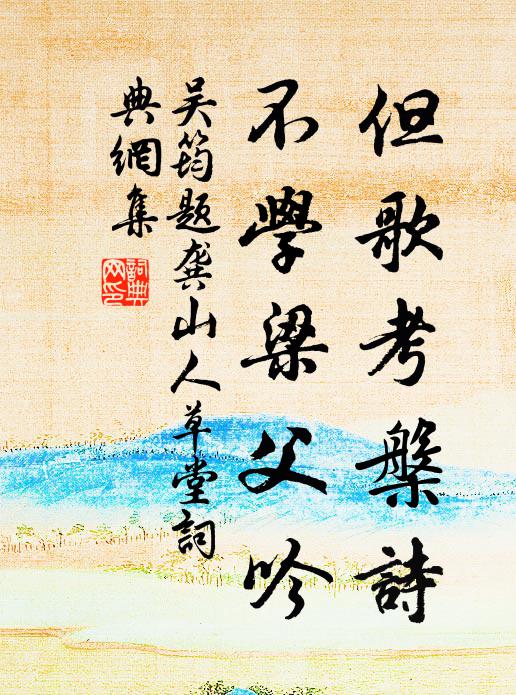 但歌考槃詩
不學梁父吟
吴筠題龔山人草堂詞
典網集
詞典網印